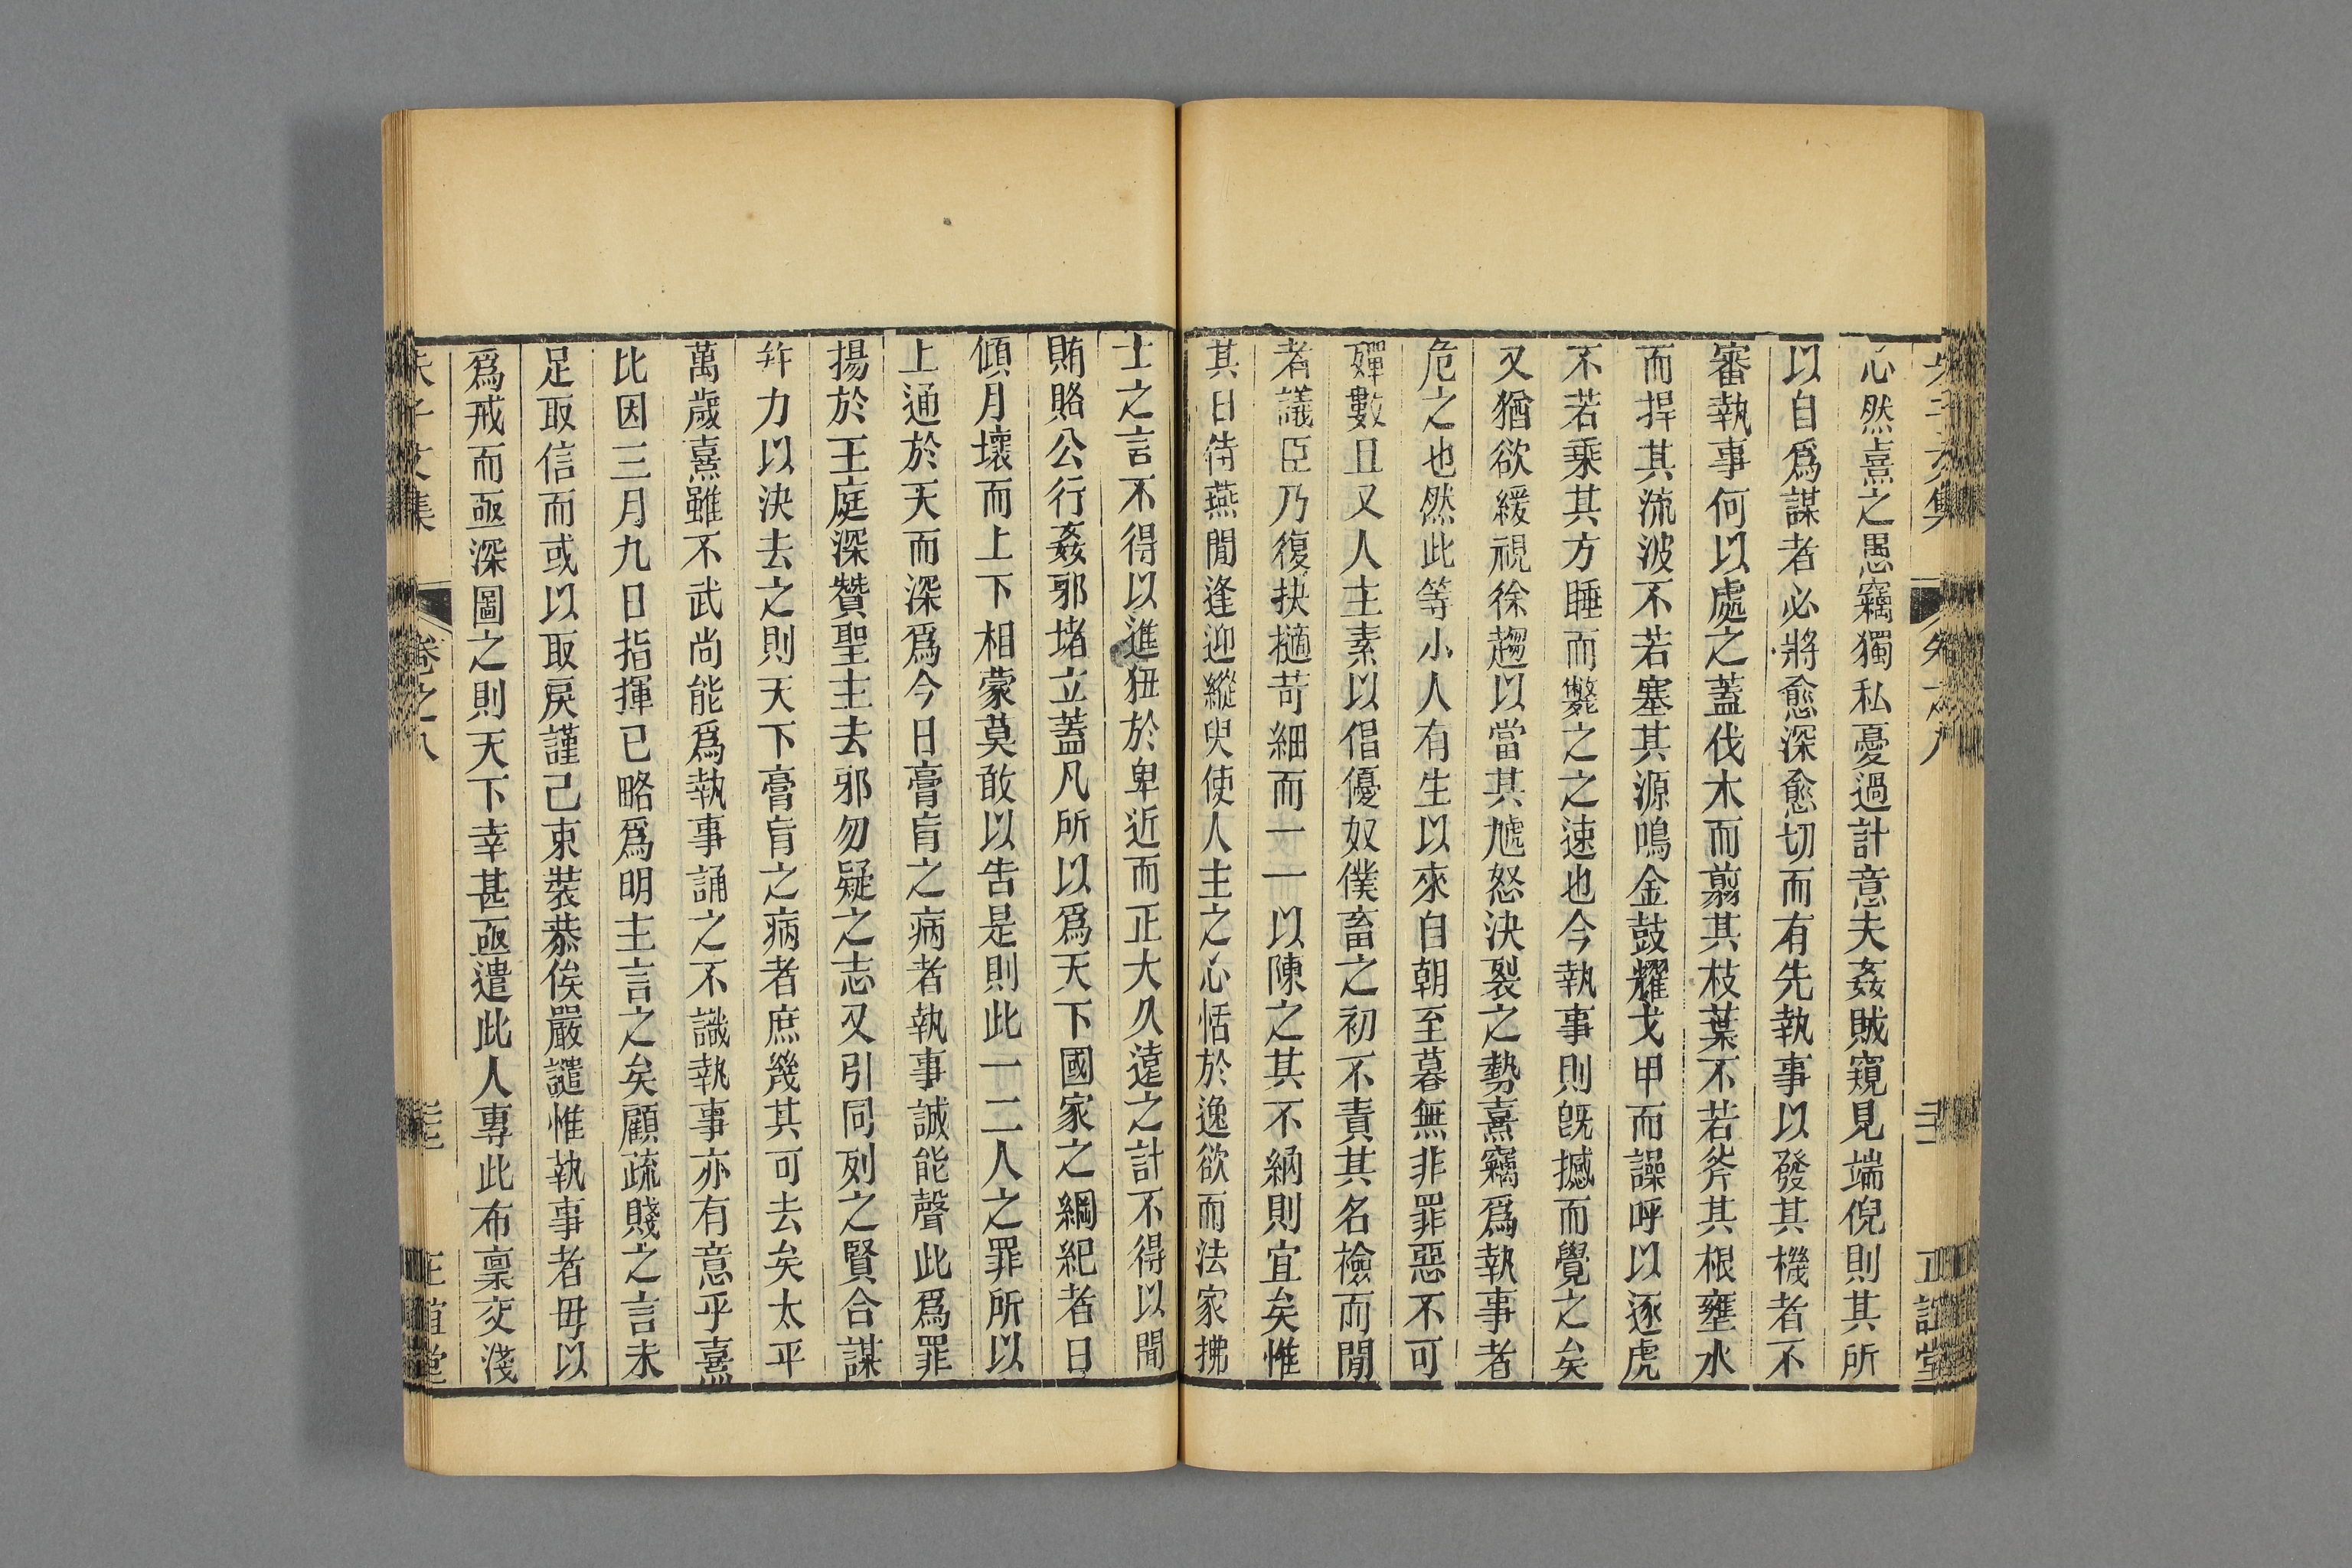 心然熹之愚竊獨私憂過計意夫姦賊窺見端倪則其所
以自爲謀者必將愈深愈切而有先執事以發其機者不
審執事何以處之蓋伐木而翦其枝葉不若斧其根壅水
而捍其流波不若塞其源鳴金鼓耀戈甲而譟呼以逐虎
不若乗其方睡而斃之之速也今執事則旣撼而覺之矣
又猶欲緩視徐趨以當其虓怒決裂之勢熹竊爲執事者
危之也然此等小人有生以來自朝至暮無非罪惡不可
殫數且又人主素以倡優奴僕畜之初不責其名檢而閒
者議臣乃復抉擿苛細而一一以陳之其不納則宜矣惟
其日侍燕閒逢迎縱臾使人主之心恬於逸欲而法家拂
士之言不得以進狃於卑近而正大久遠之計不得以聞
賄賂公行姦邪堵立蓋凡所以爲天下國家之綱紀者日
傾月壞而上下相蒙莫敢以告是則此一二人之罪所以
上通於天而深爲今日膏肓之病者執事誠能聲此爲罪
揚於王庭深贊聖主去邪勿疑之志又引同列之賢合謀
幷力以決去之則天下膏肓之病者庶幾其可去矣太平
萬歲熹雖不武尚能爲執事誦之不識執事亦有意乎熹
比因三月九日指揮已略爲明主言之矣顧疏賤之言未
足取信而或以取戾謹己束裝恭俟嚴譴惟執事者毋以
爲戒而亟深圖之則天下幸甚亟遣此人專此布稟交淺
朱子文集 卷之八 正誼堂